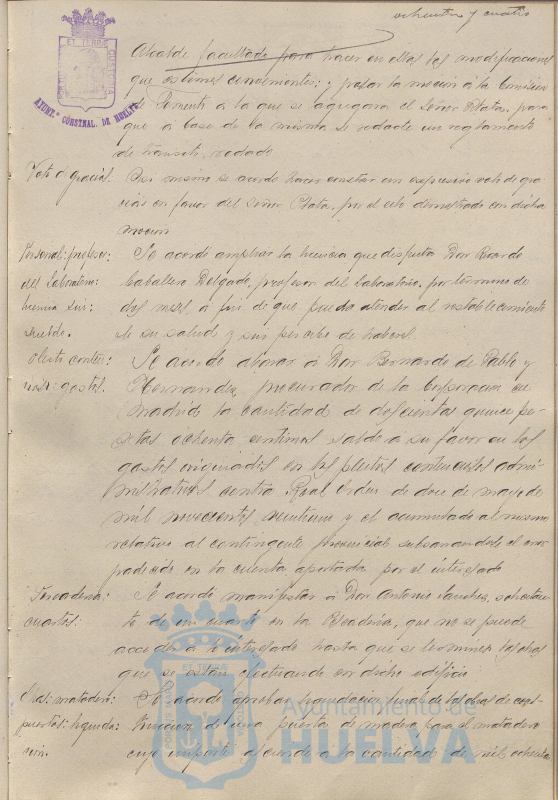 ochenta y cuatro
Alcalde facultado para hacer en ellas las modificaciones
que estimes convenientes; y pasar la moción a la Comisión
de Fomento a la que se agregará el Señor Mata, para
que a base de la misma se redacte un reglamento
de transito rodado
Voto d gracias. Asi mismo se acordó hacer constar un expresivo voto de gra-
cias en favor del Señor Mata, por el celo demostrado con dicha
moción
Personal: profesor: Se acordó ampliar la licencia que disfruta Don Ricardo
del Laboratorio: Caballero Delgado, profesor del Laboratorio, por término de
licencia sin dos meses, a fin de que pueda atender al restablecimiento
sueldo. de su salud y sin percibo de haberes.
Pleito conten: Se acordó abonar á Don Bernardo de Pablo y
cioso: gastos. Hernandez, procurador de la Corporación en
Madrid la cantidad de doscientas quince pe-
setas ochenta centimos saldo a su favor en los
gastos originados en los pleitos contenciosos admi-
nistrativos contra Real Orden de doce de mayo de
mil novecientos veintiuno y el acumulado al mismo
relativo al contingente provincial subsanandose el error
padecido en la cuenta aportada por el interesado
Panadería: Se acordó manifestar á Don Antonio Sanchez, solicitan-
cuartos: te de un cuarto en la que no se puede
acceder a lo interesado hasta que se terminen las obras
que se están efectuando en dicho edificio
Obras: matadero: Se acordó aprobar liquidación final de las obras de cons-
puertas: liquida- trucción de una puerta de madera para el matadero
ción. cuyo importe asciende a la cantidad de mil ochenta
ET TERRAE CUSTODIA
AYUNT.º CONSTNAL. DE HUELVA
Ayuntamiento de
HUELVA